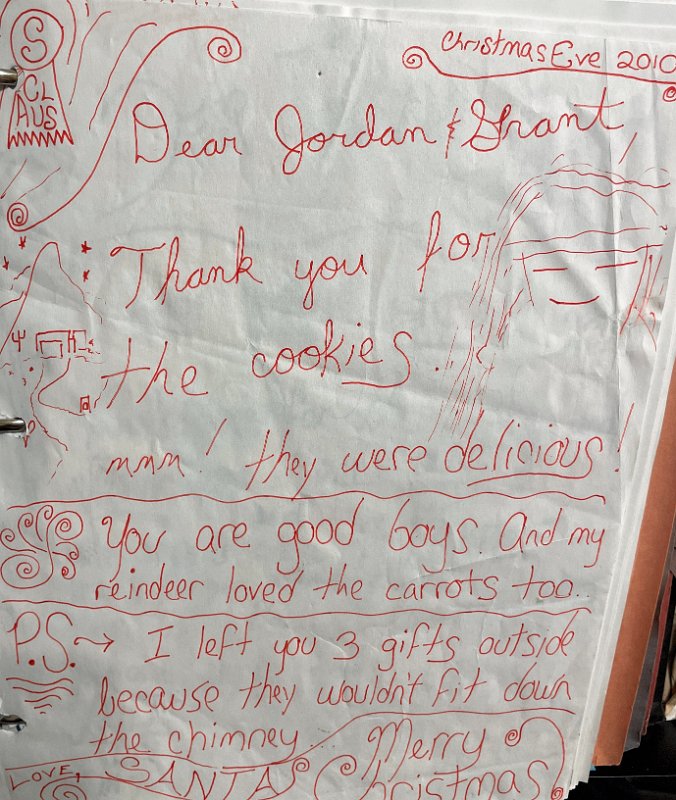 S
CL
AUS
Christmas Eve 2010
Dear Jordan & Grant,
Thank you for
the cookies.
mmm! they were delicious!
You are good boys. And my
reindeer loved the carrots too..
P.S. → I left you 3 gifts outside
because they wouldn't fit down
the chimney
Merry
Christmas
LOVE, SANTA